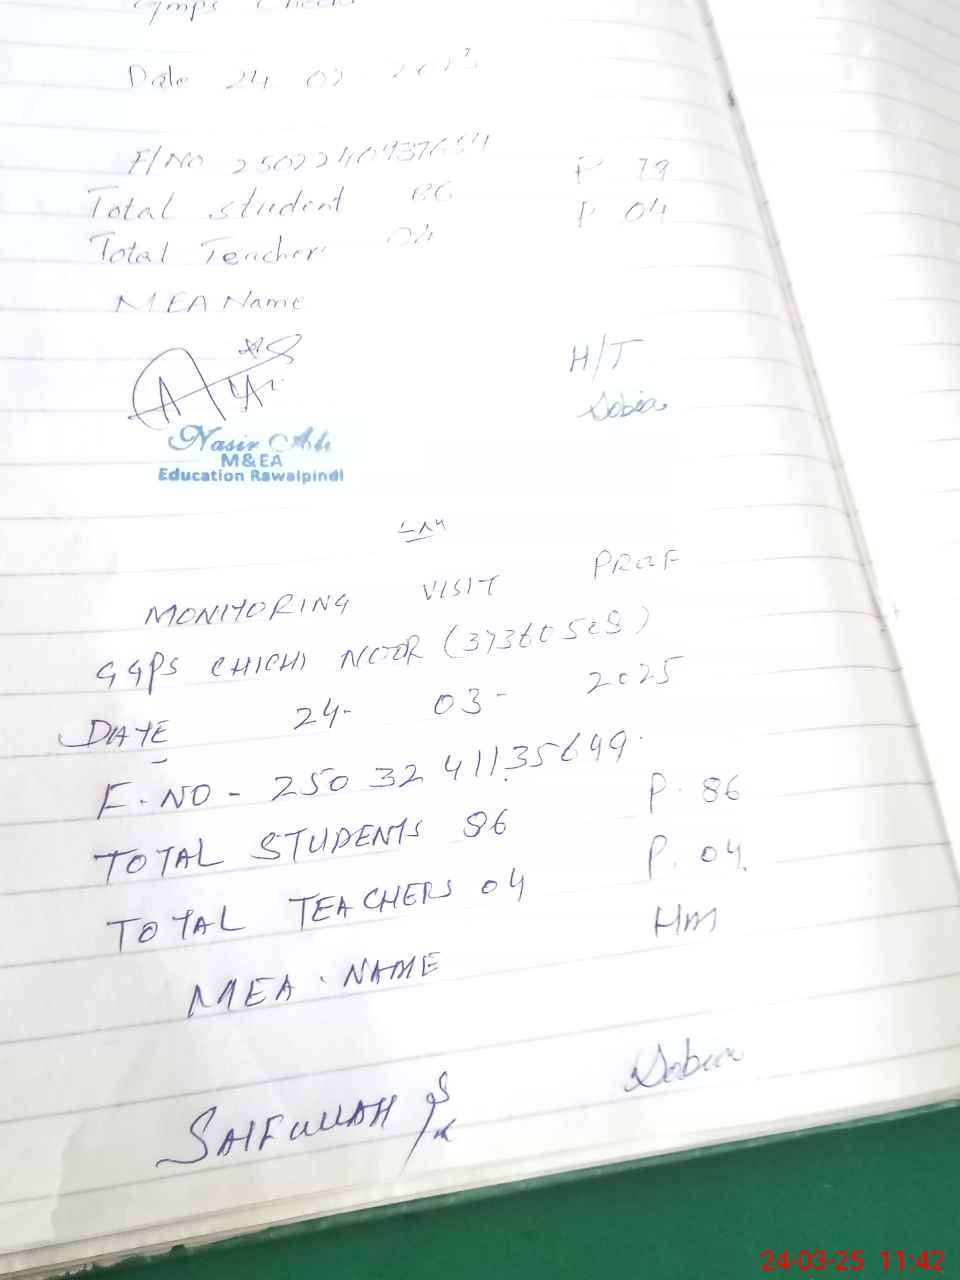 Date 24 02 2025
F/No 2502240937654
Total student 86 P 79
Total Teacher 04 P 04
MEA Name
H/T
Sobia
Nasir Ali
M&EA
Education Rawalpindi
MONITORING VISIT PROF
GGPS CHICHI NOOR (37360528)
DATE 24- 03- 2025
F.NO - 2503241135649
TOTAL STUDENTS 86 P. 86
TOTAL TEACHERS 04 P. 04.
HM
MEA. NAME
Sobia
SAIFULLAH
24-03-25 11:42